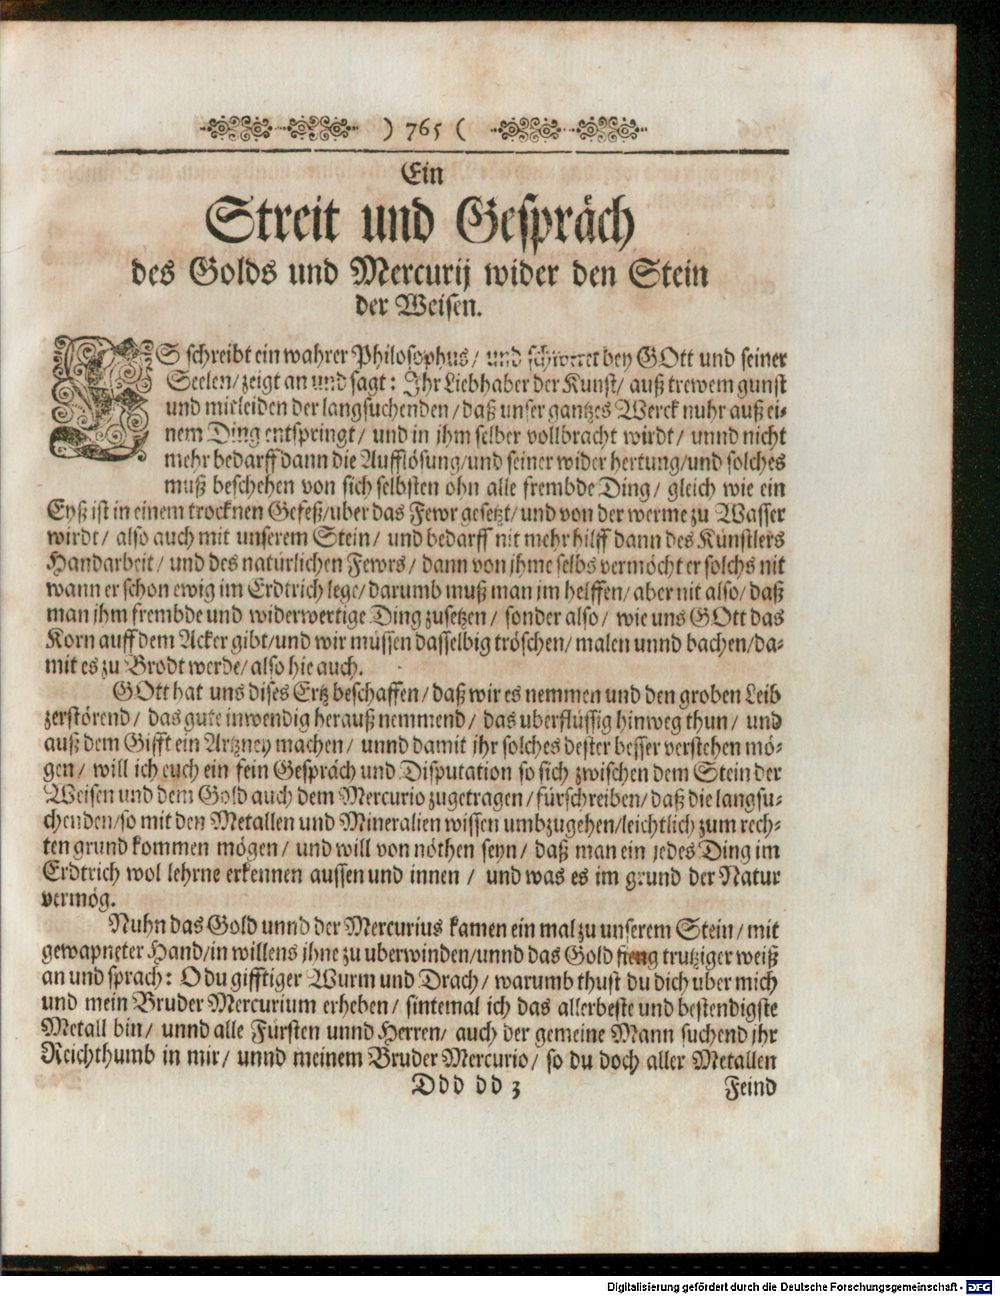 ) 765 (
Ein
Streit und Gespräch
des Golds und Mercurij wider den Stein
der Weisen.
ES schreibt ein wahrer Philosophus / und schweret bey GOtt und seiner
Seelen / zeigt an und sagt: Ihr Liebhaber der Kunst / auß trewem gunst
und mitleiden der langsuchenden / daß unser gantzes Werck nuhr auß ei-
nem Ding entspringt / und in jhm selber vollbracht wirdt / unnd nicht
mehr bedarff dann die Aufflösung / und seiner wider hertung / und solches
muß beschehen von sich selbsten ohn alle frembde Ding / gleich wie ein
Eyß ist in einem trocknen Gefeß / uber das Fewr gesetzt / und von der werme zu Wasser
wirdt / also auch mit unserem Stein / und bedarff nit mehr hilff dann des Künstlers
Handarbeit / und des natürlichen Fewrs / dann von jhme selbs vermöcht er solchs nit
wann er schon ewig im Erdtrich lege / darumb muß man jm helffen / aber nit also / daß
man jhm frembde und widerwertige Ding zusetzen / sonder also / wie uns GOtt das
Korn auff dem Acker gibt / und wir müssen dasselbig tröschen / malen unnd bachen / da-
mit es zu Brodt werde / also hie auch.
GOtt hat uns dises Ertz beschaffen / daß wir es nemmen und den groben Leib
zerstörend / das gute inwendig herauß nemmend / das uberflüssig hinweg thun / und
auß dem Gifft ein Artzney machen / unnd damit jhr solches dester besser verstehen mö-
gen / will ich euch ein fein Gespräch und Disputation so sich zwischen dem Stein der
Weisen und dem Gold auch dem Mercurio zugetragen / fürschreiben / daß die langsu-
chenden / so mit den Metallen und Mineralien wissen umbzugehen / leichtlich zum rech-
ten grund kommen mögen / und will von nöthen seyn / daß man ein jedes Ding im
Erdtrich wol lehrne erkennen aussen und innen / und was es im grund der Natur
vermög.
Nuhn das Gold unnd der Mercurius kamen ein mal zu unserem Stein / mit
gewapneter Hand / in willens jhne zu uberwinden / unnd das Gold fieng trutziger weiß
an und sprach: O du gifftiger Wurm und Drach / warumb thust du dich uber mich
und mein Bruder Mercurium erheben / sintemal ich das allerbeste und bestendigste
Metall bin / unnd alle Fürsten unnd Herren / auch der gemeine Mann suchend jhr
Reichthumb in mir / unnd meinem Bruder Mercurio / so du doch aller Metallen
Ddd dd 3
Feind
Digitalisierung gefördert durch die Deutsche Forschungsgemeinschaft - DFG